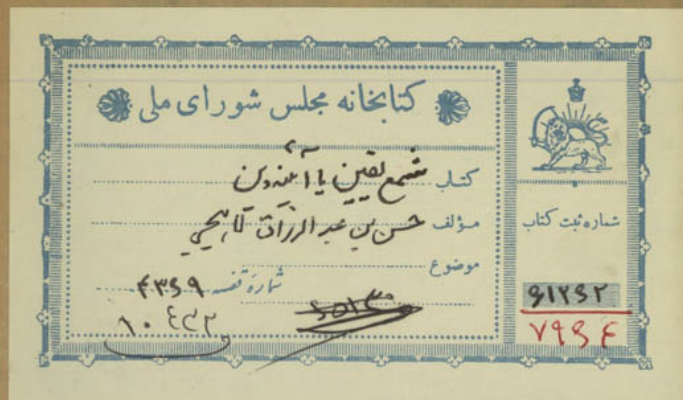 کتابخانه مجلس شورای ملی
کتاب شمع یقین یا آئینه دین
مؤلف حسن بن عبد الرزاق لاهیجی
موضوع
شماره قفسه ۴۳۶۹
۱۰۴۳۲
شماره ثبت کتاب
۶۱۲۶۲
۷۹۶۴